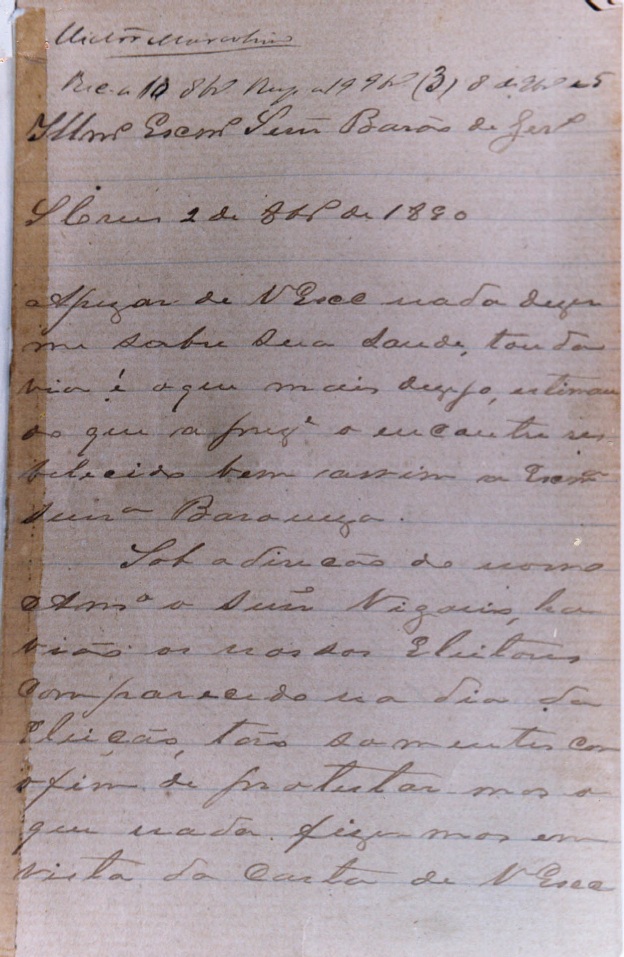 Victor Marcolino
Rec a 10 8bro Resp a 19 9bro (3) 8 de
Illmo Excmo Senr Barão de Ger
S Cruz 2 de 8bro de 1890
Apezar de V Exce nada dizer
me sobre sua saude, toda
via é o que mais dezejo, estiman
do que a prezte o encontre res
belecido bem assim a Excma
Senra Baroneza.
Sob a direcão do nosso
Amo o Senr Vigario, ha
vião os nossos Eleitores
comparecido na dia da
Eleicão, tão somentes com
o fim de protestar mos o
que nada fizemos em
vista da Carta de V Exce